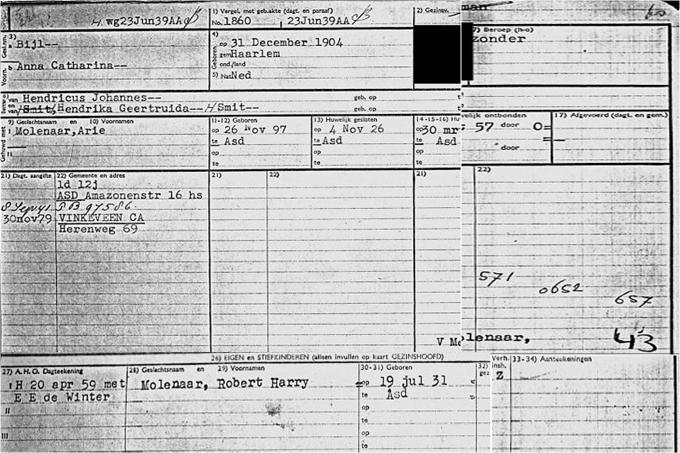 H. wg23Jun39AA
1) Vergel. met geb.akte (dagt. en paraaf)
No. 1860 , 23Jun39AA
2) Gezinsv.
man
60
3)
a Bijl--
4)
op 31 December 1904
gem Haarlem
7) Beroep (h-o)
zonder
b Anna Catharina--
ond./land
5) Nat Ned
van Hendricus Johannes--
geb. op
en Smit, Hendrika Geertruida--HSmit--
geb. op
9) Geslachtsnaam en 10) Voornamen
11-12) Geboren
13) Huwelijk gesloten
14-15-16) Hu
welijk ontbonden
17) Afgevoerd (dagt. en gem.)
Gehuwd met
I Molenaar, Arie
op 26 Nov 97
op 4 Nov 26
op 30 mr
57 door O=
te Asd
te Asd
te Asd
op
op
op
door
te
te
te
21) Dagt. aangifte
22) Gemeente en adres
21)
22)
22)
1d 12j
ASD Amazonenstr 16 hs
P.B. 97586.
30nov79 VINKEVEEN CA
Herenweg 69
571
0652
657
V Molenaar,
43
26) EIGEN en STIEFKINDEREN (alleen invullen op kaart GEZINSHOOFD)
27) A.H.O. Dagteekening
28) Geslachtsnaam en 29) Voornamen
30-31) Geboren
32)
Verh. insh.
33-34) Aanteekeningen
I H 20 apr 59 met
Molenaar, Robert Harry
op 19 jul 31
Z
E E de Winter
te Asd
II
op
te
III
op
te